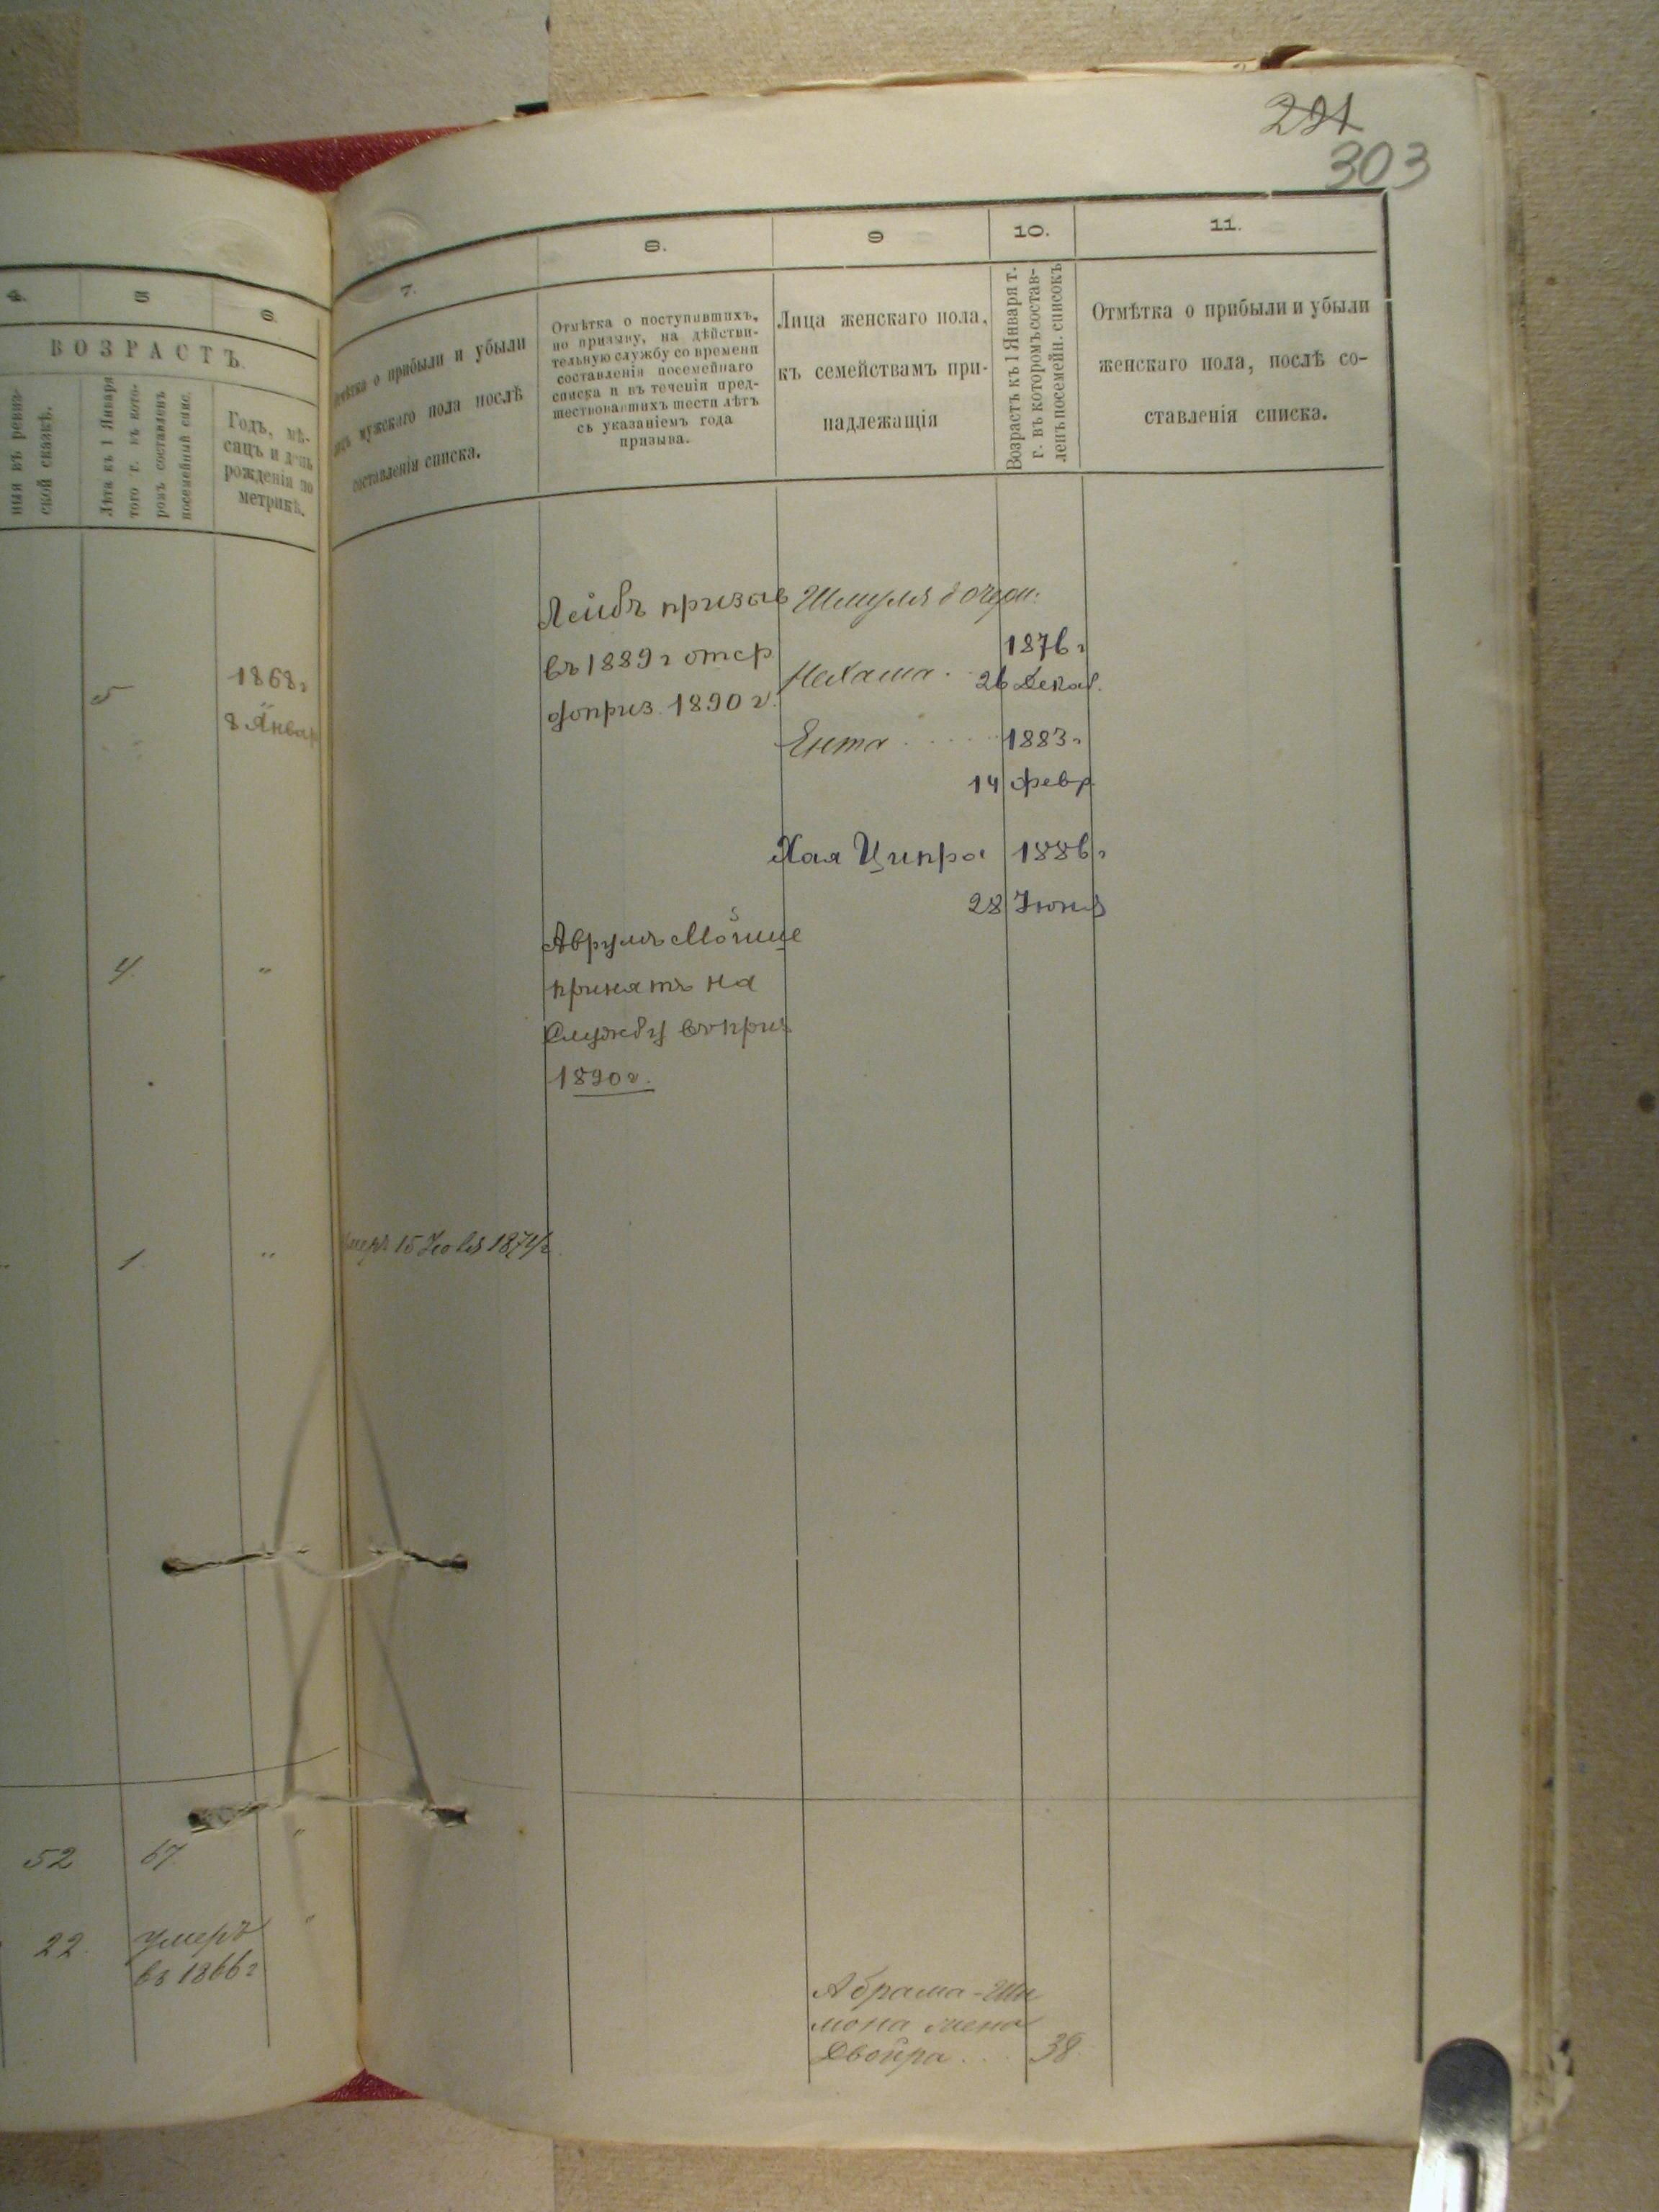 291
303
4.
5
6.
ВОЗРАСТЪ.
ныя въ ревиз-
ской сказкѣ.
Лѣта къ 1 Января
того г. въ кото-
ромъ составленъ
посемейный спис.
Годъ, мѣ-
сяцъ и день
рожденія по
метрикѣ.
5
1868 г
8 Январ
4.
"
1
"
52
67
"
22
умеръ
въ 1866 г
"
7.
8.
9
10.
11.
о прибыли и убыли
мужскаго пола послѣ
составленія списка.
Отмѣтка о поступившихъ,
по призыву, на дѣйстви-
тельную службу со времени
составленія посемейнаго
списка и въ теченіи пред-
шествовавшихъ шести лѣтъ
съ указаніемъ года
призыва.
Лица женскаго пола,
къ семействамъ при-
надлежащія
Возрастъ къ 1 Января т.
г. въ которомъ состав-
ленъ посемейн. списокъ
Отмѣтка о прибыли и убыли
женскаго пола, послѣ со-
ставленія списка.
Лейбъ призыв
въ 1889 г отср
доприз. 1890 г.
Шмуля дочери:
1876 г
Нехама . . 26 Декаб.
Ента . . . . . 1883 г
14 Февр
Хая Ципра 1886 г
28 Июня
Аврумъ Мойше
принятъ на
службу въ приз
1890 г.
умеръ 15 1874 г
Абрама-Ши
мона жена
Двойра . . . 38